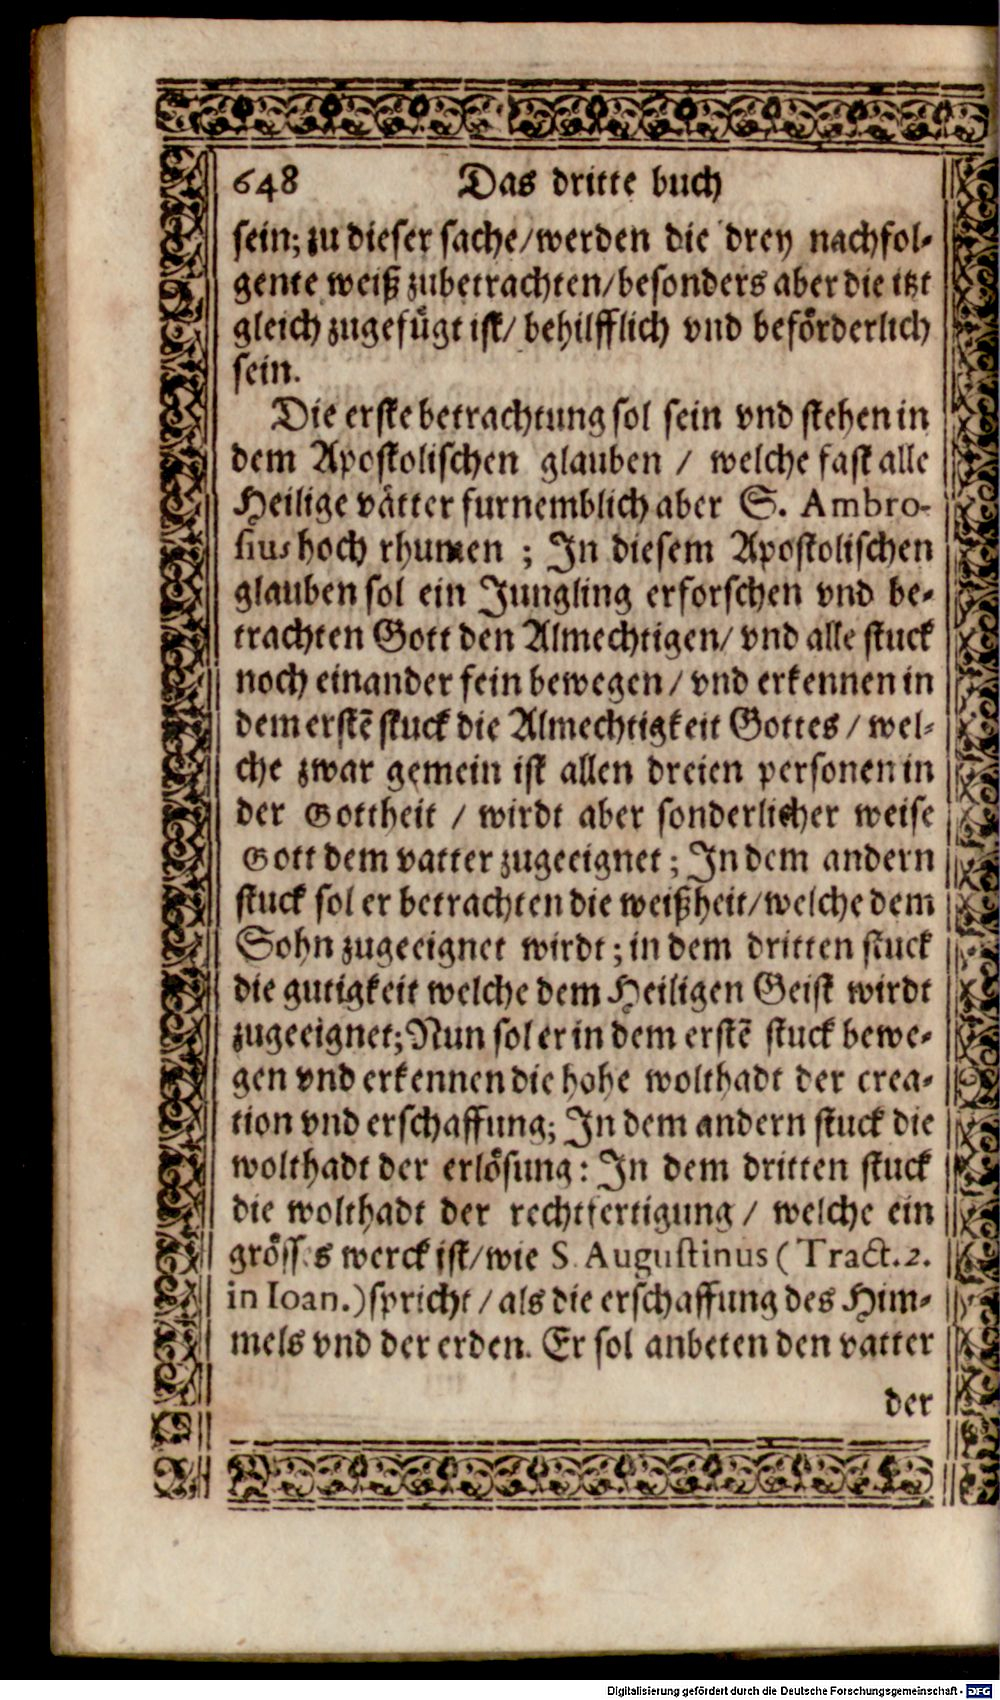 648 Das dritte buch
sein; zu dieser sache/werden die drey nachfol-
gente weiß zubetrachten/besonders aber die itzt
gleich zugefügt ist/ behilfflich vnd beförderlich
sein.
Die erste betrachtung sol sein vnd stehen in
dem Apostolischen glauben / welche fast alle
Heilige vätter furnemblich aber S. Ambro-
sius hoch rhumen ; In diesem Apostolischen
glauben sol ein Jungling erforschen vnd be-
trachten Gott den Almechtigen/ vnd alle stuck
noch einander fein bewegen / vnd erkennen in
dem erstẽ stuck die Almechtigkeit Gottes / wel-
che zwar gemein ist allen dreien personen in
der Gottheit / wirdt aber sonderlicher weise
Gott dem vatter zugeeignet ; In dem andern
stuck sol er betrachten die weißheit/welche dem
Sohn zugeeignet wirdt ; in dem dritten stuck
die gutigkeit welche dem Heiligen Geist wirdt
zugeeignet; Nun sol er in dem erstẽ stuck bewe-
gen vnd erkennen die hohe wolthadt der crea-
tion vnd erschaffung; In dem andern stuck die
wolthadt der erlösung : In dem dritten stuck
die wolthadt der rechtfertigung / welche ein
grösses werck ist/wie S. Augustinus ( Tract. 2.
in Ioan.) spricht / als die erschaffung des Him-
mels vnd der erden. Er sol anbeten den vatter
der
Digitalisierung gefördert durch die Deutsche Forschungsgemeinschaft - DFG